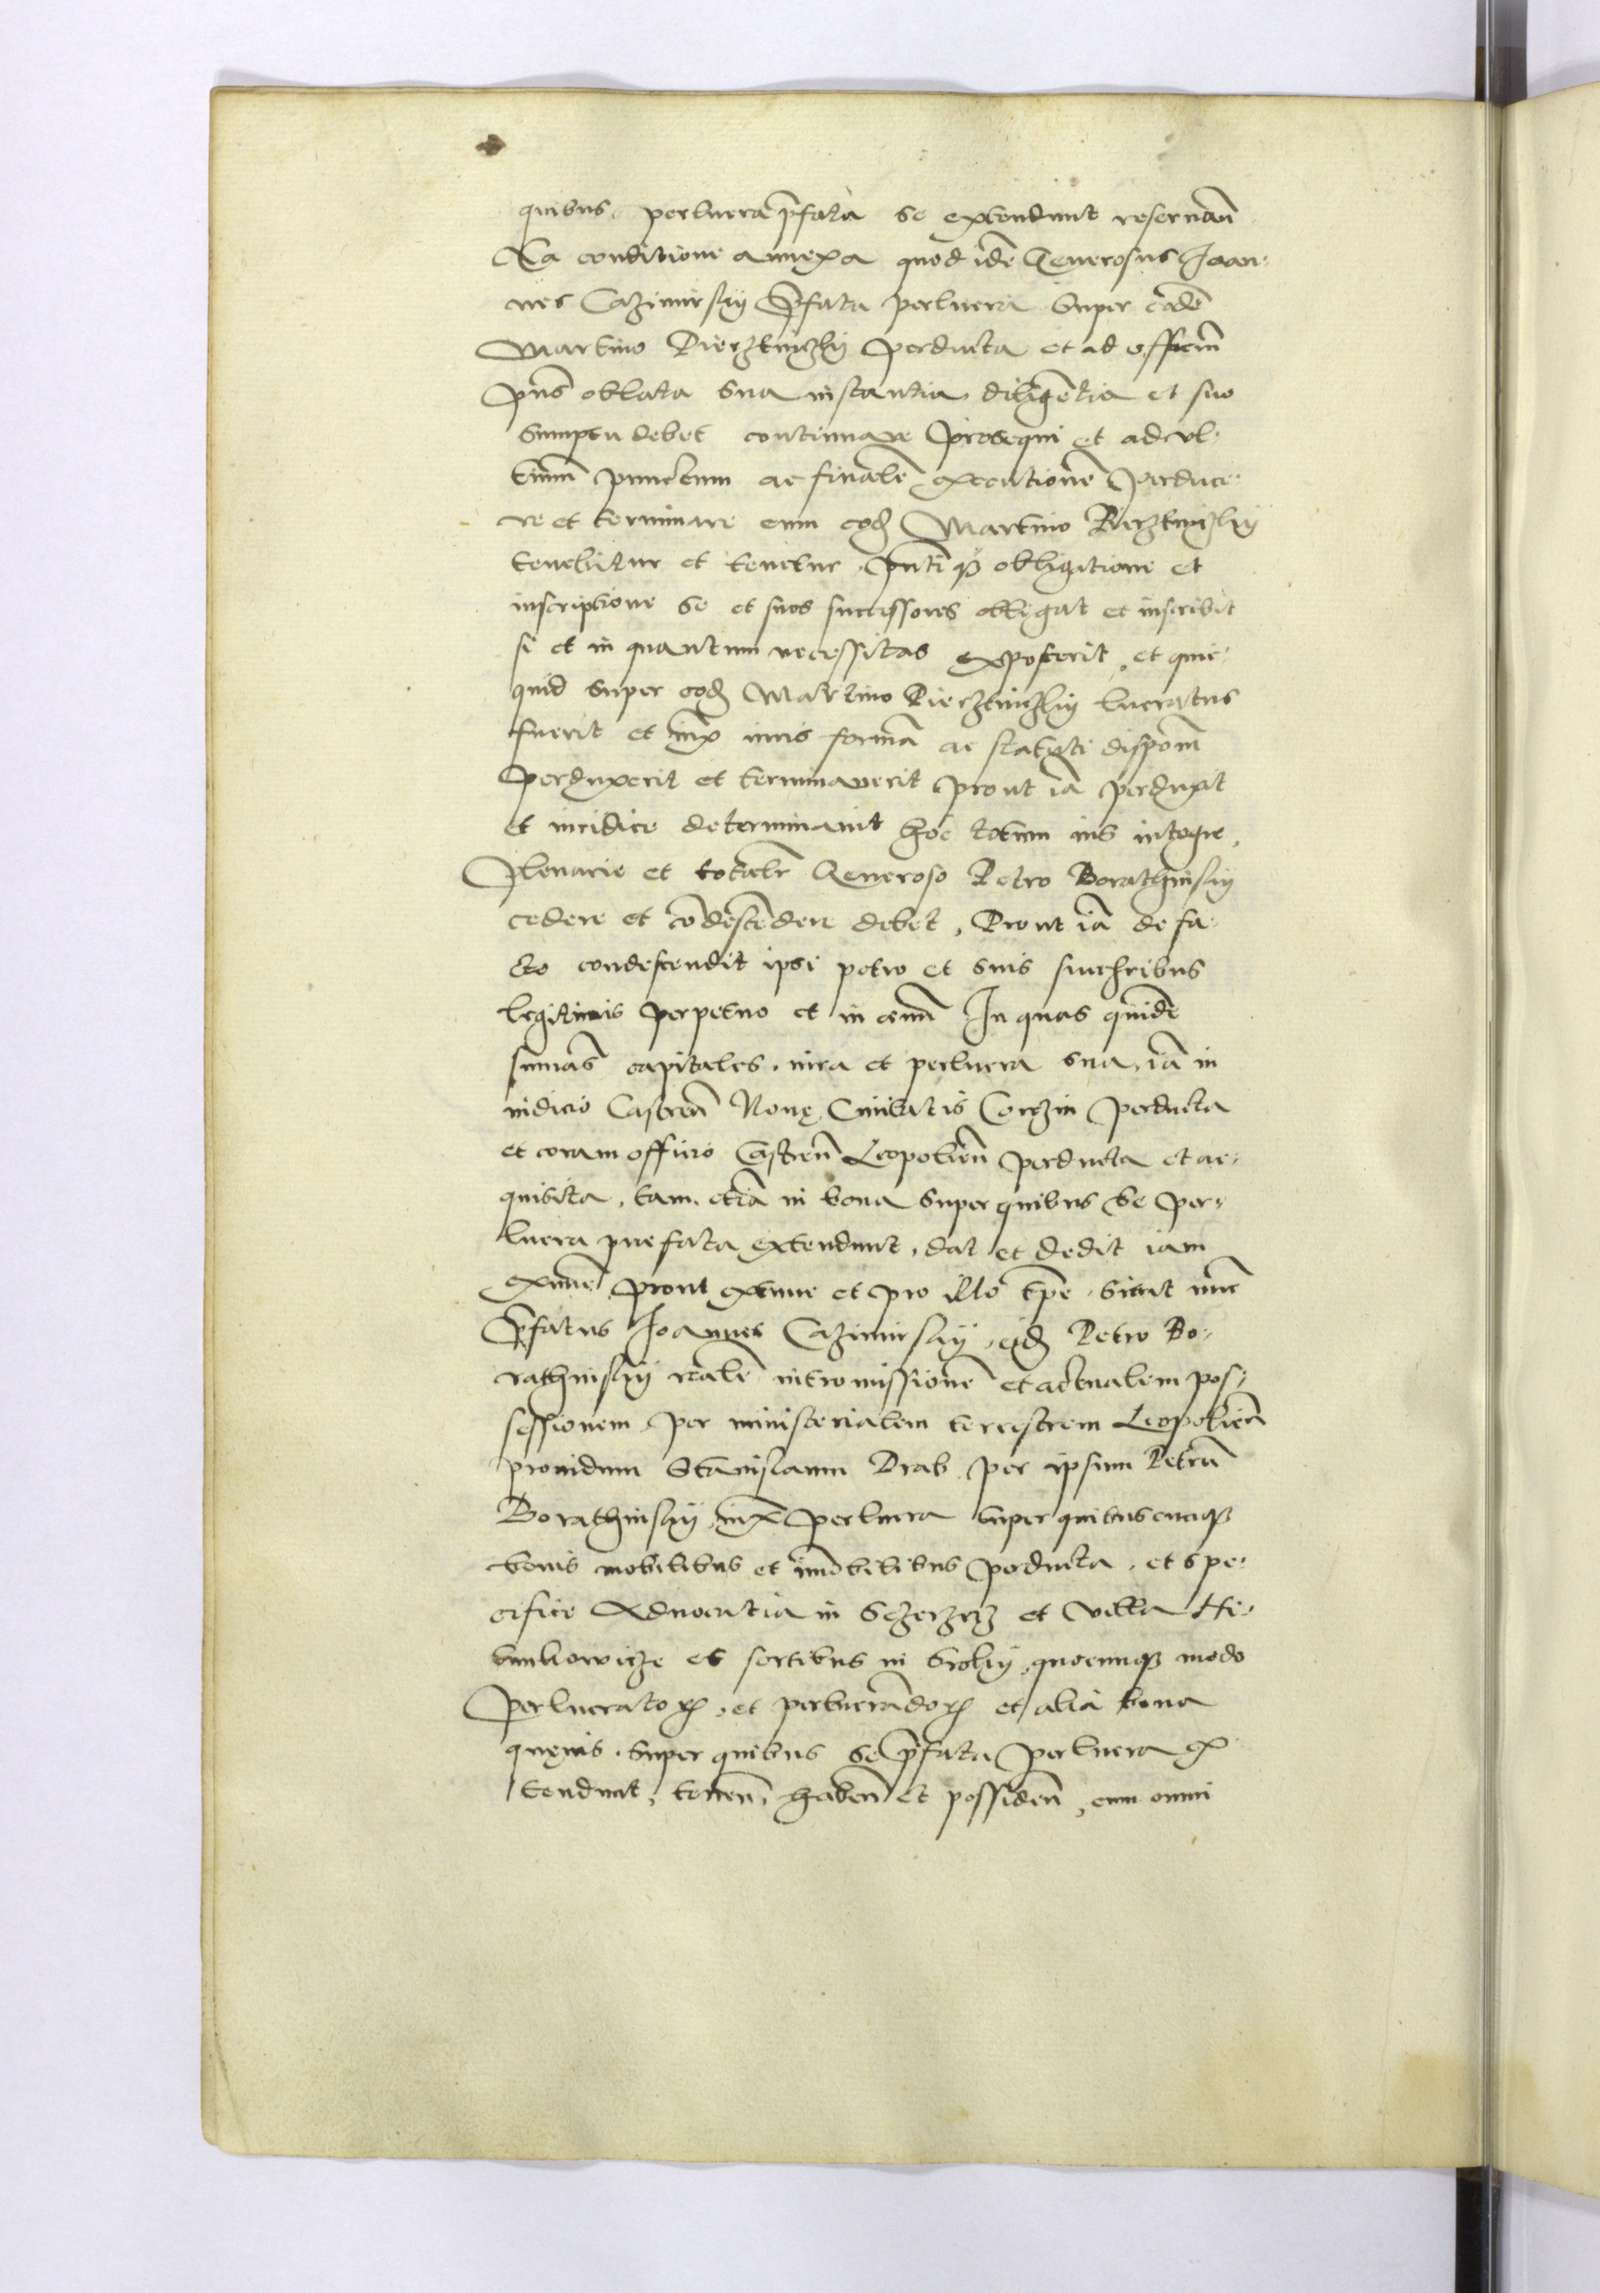 quibus perlucra p̃fata se extendunt reseruan̄
Ea conditione annexa quod idē Generosus Joan
nes Cazimirsky p̃fata perlucra super eodē
Martino perducta et ad officiū
pñs oblata sua instantia diligētia et suo
sumptu debet continuare prosequi et ad ul
timū punctum ac finalē executionē perduce
re et terminare cum eod Martino
tenebitur et tenetur p̃nti obligatione et
inscriptione se et suos successores obligat et inscribit
si et in quantum necessitas exposcerit, et quic
quid super eod Martino lucratus
fuerit et iux iuris formā ac statuti disponē
perduxerit et terminauerit prout iā perduxit
et iuridice determinauit hoc totum ius integre,
plenarie et totalr Generoso Petro Borathinsky
cedere et cōdescēdere debet, Prout iā de fa
cto condescendit ipsi petro et suis succribus
legitimis perpetuo et in æuū In quas quidē
sumās capitales, iura et perlucra sua, iā in
iudicio Castren̄ Noue Ciuitatis Corczin perducta
et coram officio Castren̄ Leopolien̄ perducta et ac
quisita, tam etiā in bona super quibus se per
lucra prefata extendunt, dat et dedit iam
exnunc prout extunc et pro illo tp̄e sicut nūc
p̃fatus Joannes Cazimirsky, eid Petro Bo
rathinsky realē intromissionē et actualem pos
sessionem per ministerialem terrestrem Leopolien̄
prouidum Stanislaum Drab per ipsum Petrū
Borathinsky, iux perlucra super quibuscunq
bonis mobilibus et imobilibus perducta, et spe
cifice Aduocatia in Sczerzecz et villa Hr
bunkowicze et sortibus in quocunq modo
perlucrator, et perlucrādor et alia bona
queuis super quibus se p̃fata perlucra ex
tendunt, tenen̄, haben̄ et possiden̄, cum omni